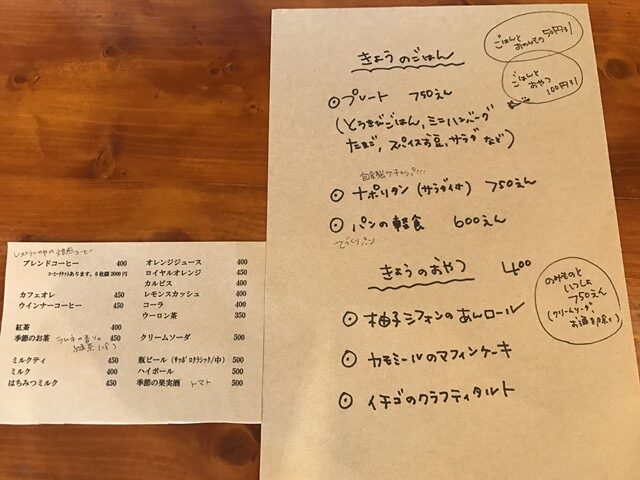 きょうのごはん
ごはんと
おのみもの 50円引
ごはんと
おやつ
100円引
プレート 750えん
(とうきびごはん、ミニハンバーグ
たまご、スパイスお豆、サラダ など)
自家製ケチャップ!!!
ナポリタン (サラダ付) 750えん
パンの軽食 600えん
てづくりパン
きょうのおやつ 400
のみものと
いっしょ
750えん
(クリームソーダ、
お酒を除く)
柚子シフォンのあんロール
カモミールのマフィンケーキ
イチゴのクラフティタルト
ブレンドコーヒー 400
コーヒーチケットあります。6枚綴 2000円
カフェオレ 450
ウインナーコーヒー 450
紅茶 400
季節のお茶 450
ミルクティ 450
ミルク 400
はちみつミルク 450
オレンジジュース 400
ロイヤルオレンジ 450
カルピス 400
レモンスカッシュ 400
コーラ 400
ウーロン茶 350
クリームソーダ 500
瓶ビール(サッポロクラシック/中) 500
ハイボール 500
季節の果実酒 トマト 500